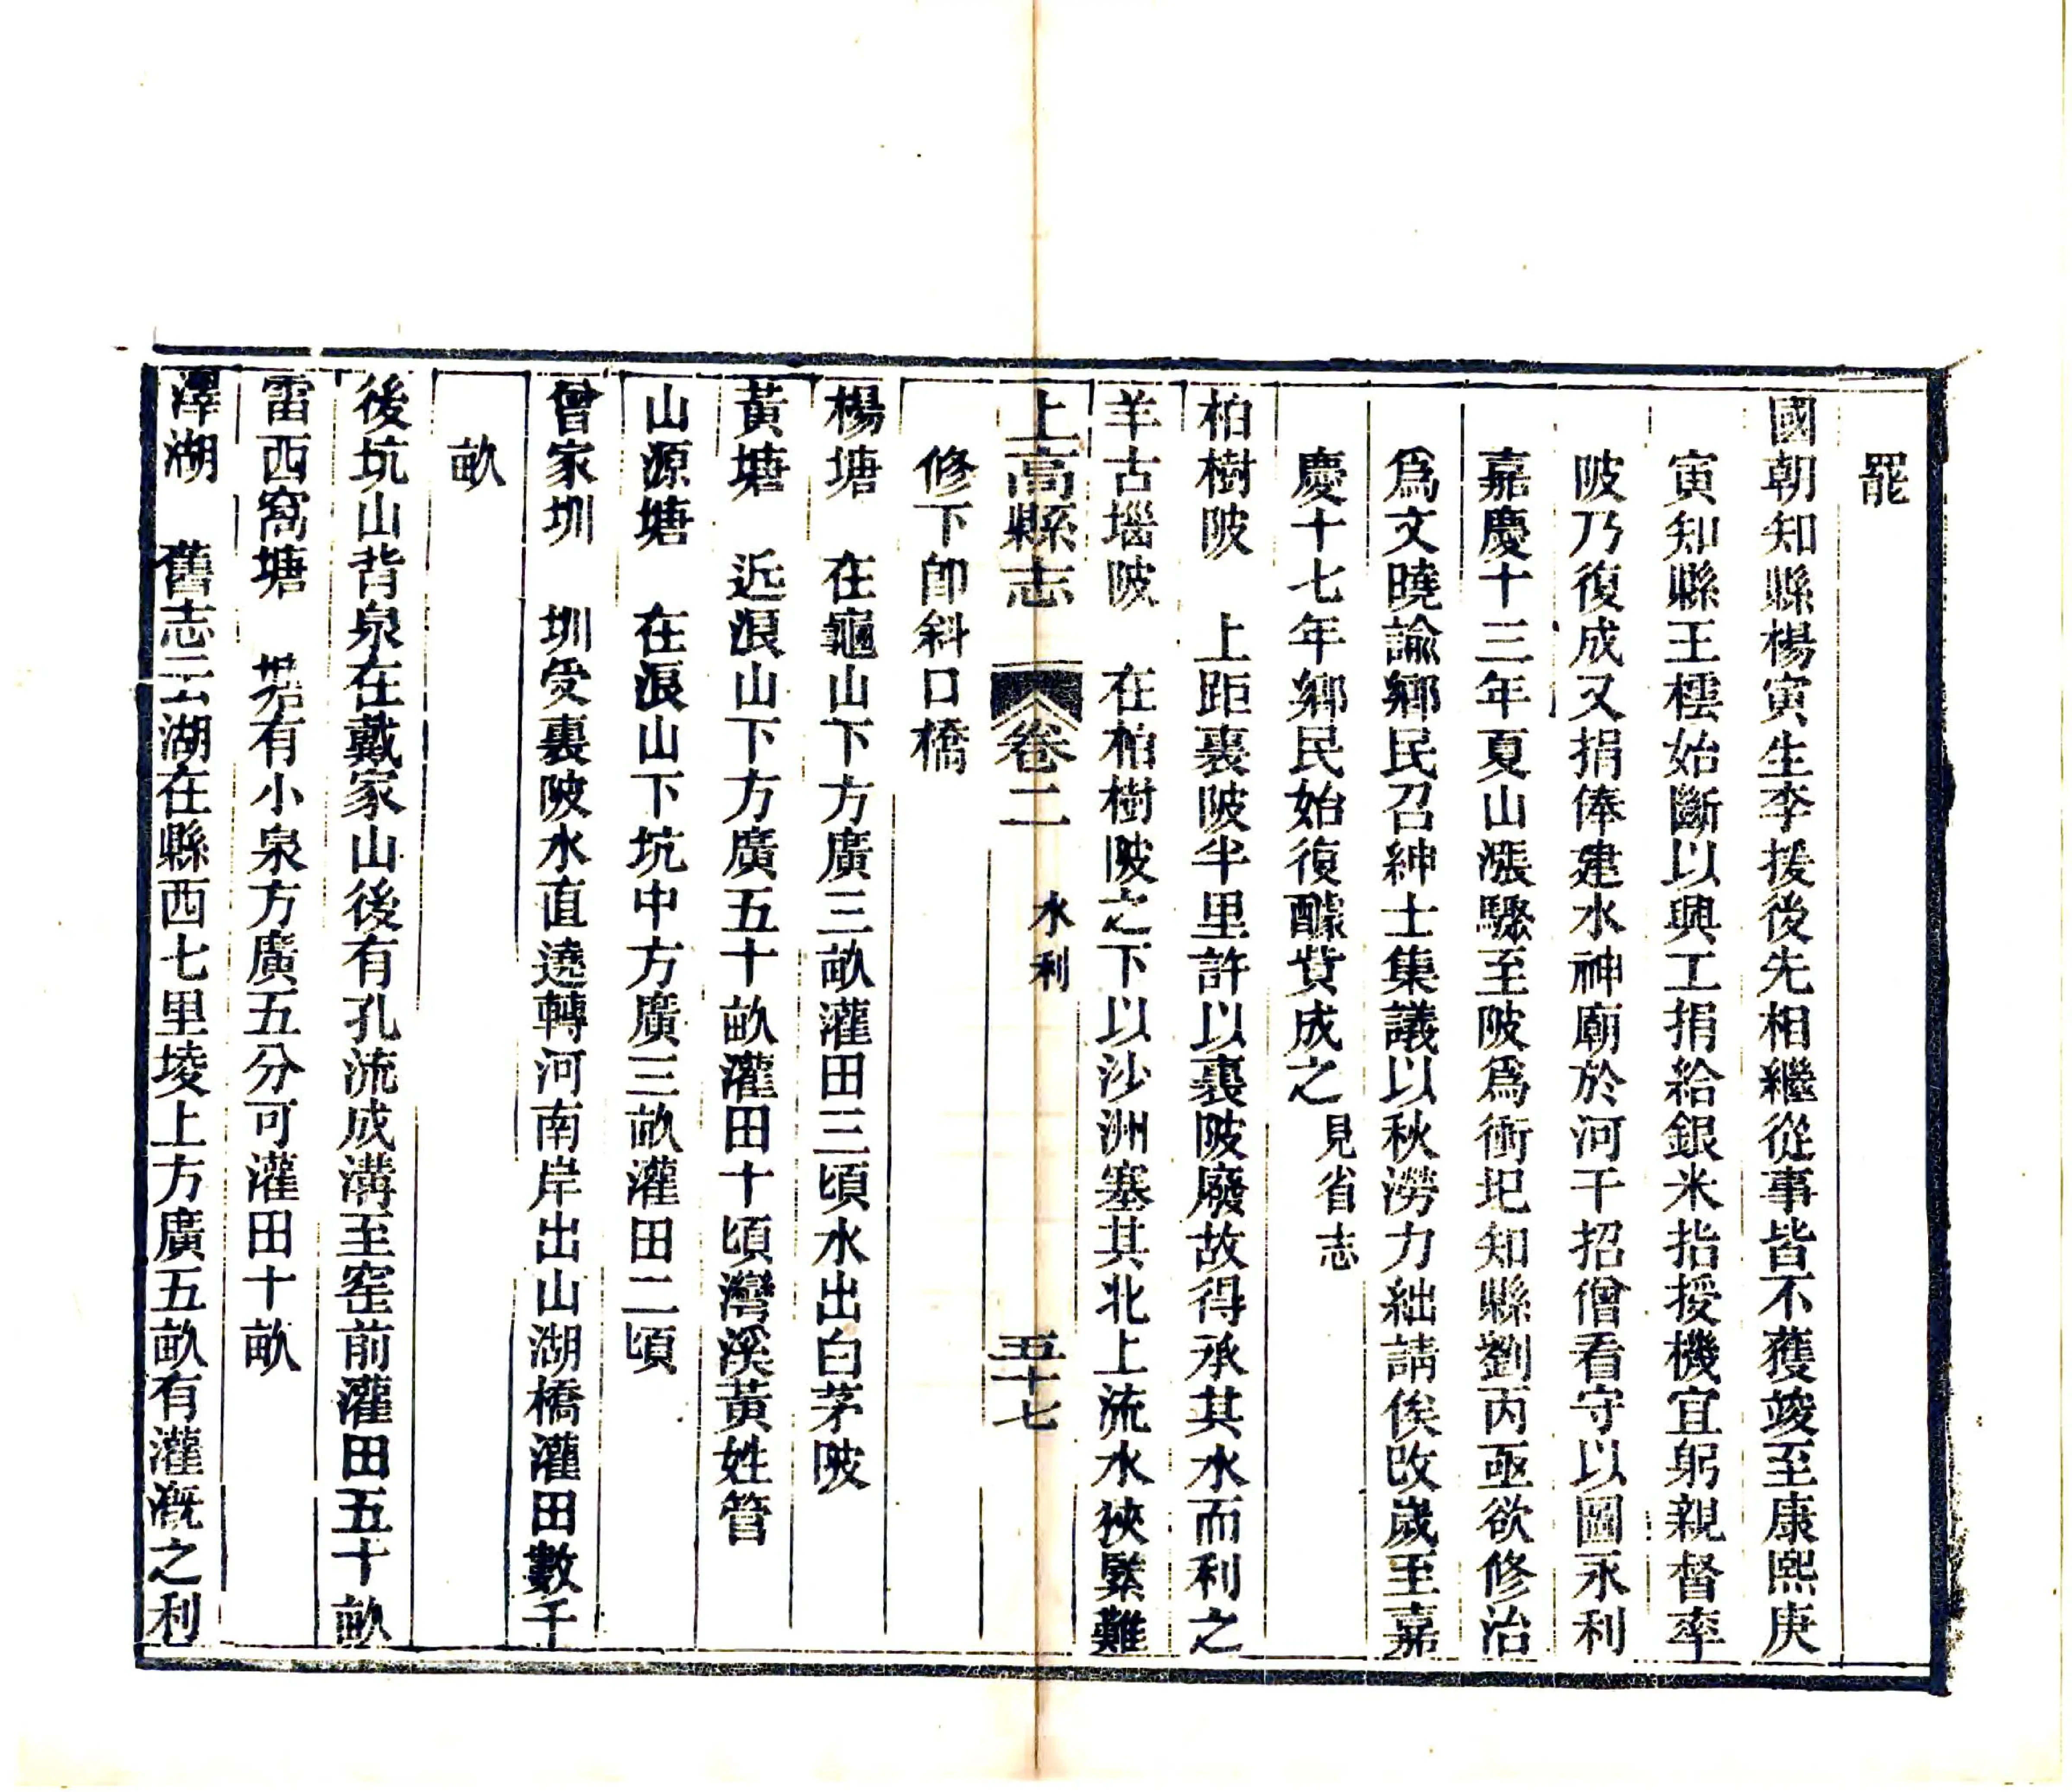 罷
國朝知縣楊寅生李援後先相繼從事皆不獲竣至康熙庚
寅知縣王橒始斷以興工捐給銀米指授機宜躬親督率
陂乃復成又捐俸建水神廟於河干招僧看守以圖永利
嘉慶十三年夏山漲驟至陂爲衝圯知縣劉丙亟欲修治
爲文曉諭鄉民召紳士集議以秋澇力絀請俟改歲至嘉
慶十七年鄉民始復醵貲成之見省志
柏樹陂　上距裏陂半里許以裏陂廢故得承其水而利之
羊古堖陂　在柏樹陂之下以沙洲塞其北上流水狹緊難
上高縣志　卷二　水利　五十七
修下卽斜口橋
楊塘　在龜山下方廣三畝灌田三頃水出白茅陂
黃塘　近浪山下方廣五十畝灌田十頃灣溪黃姓管
山源塘　在浪山下坑中方廣三畝灌田二頃
曾家圳　圳受裏陂水直遶轉河南岸出山湖橋灌田數千
畝
後坑山背泉在戴家山後有孔流成溝至窑前灌田五十畝
雷西窩塘　有小泉方廣五分可灌田十畝
澤湖　舊志云湖在縣西七里堎上方廣五畝有灌漑之利